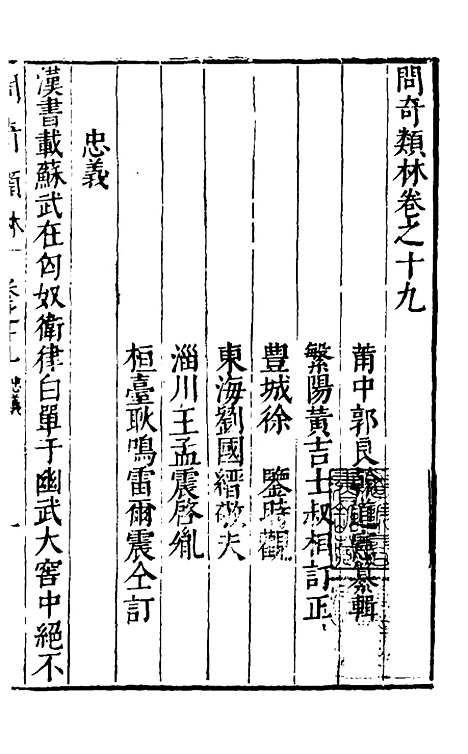 問奇類林卷之十九
莆中郭良翰道憲纂輯
繁陽黃吉士叔相訂正
豐城徐　鑒時觀
東海劉國縉敬夫
淄川王孟震啓胤
桓臺耿鳴雷爾震仝訂
忠義
漢書載蘇武在匈奴衛律白單于幽武大窖中絕不
問奇類林 卷之十九 忠義 一